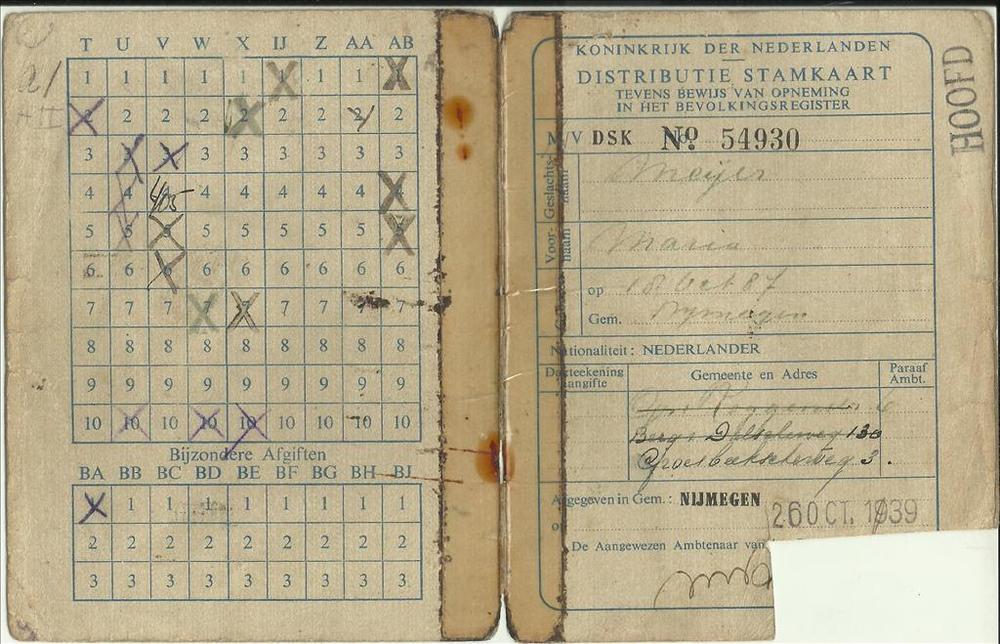 T U V W X IJ Z AA AB
1 1 1 1 1 X 1 1 X
2 2 2 2 2 2 2 2 2
3 3 3 3 3 3 3 3 3
4 4 4 4 4 4 4 4
5 5 5 5 5 5 5 5 5
6 6 6 6 6 6 6 6 6
7 7 7 7 7 7 7 7 7
8 8 8 8 8 8 8 8 8
9 9 9 9 9 9 9 9 9
10 10 10 10 10 10 10 10 10
Bijzondere Afgiften
BA BB BC BD BE BF BG BH BJ
X 1 1 1 1 1 1 1 1
2 2 2 2 2 2 2 2 2
3 3 3 3 3 3 3 3 3
KONINKRIJK DER NEDERLANDEN
DISTRIBUTIE STAMKAART
TEVENS BEWIJS VAN OPNEMING
IN HET BEVOLKINGSREGISTER
HOOFD
M/V DSK No 54930
Geslachts-
naam
Meijer
Voor-
naam
Maria
op 18 Oct 87
Gem. Nijmegen
Nationaliteit: NEDERLANDER
Dagteekening
aangifte
Gemeente en Adres
Paraaf
Ambt.
Berg en Dalscheweg 130
Groesbeekscheweg 3.
Afgegeven in Gem.: NIJMEGEN
op
26 OCT. 1939
De Aangewezen Ambtenaar van